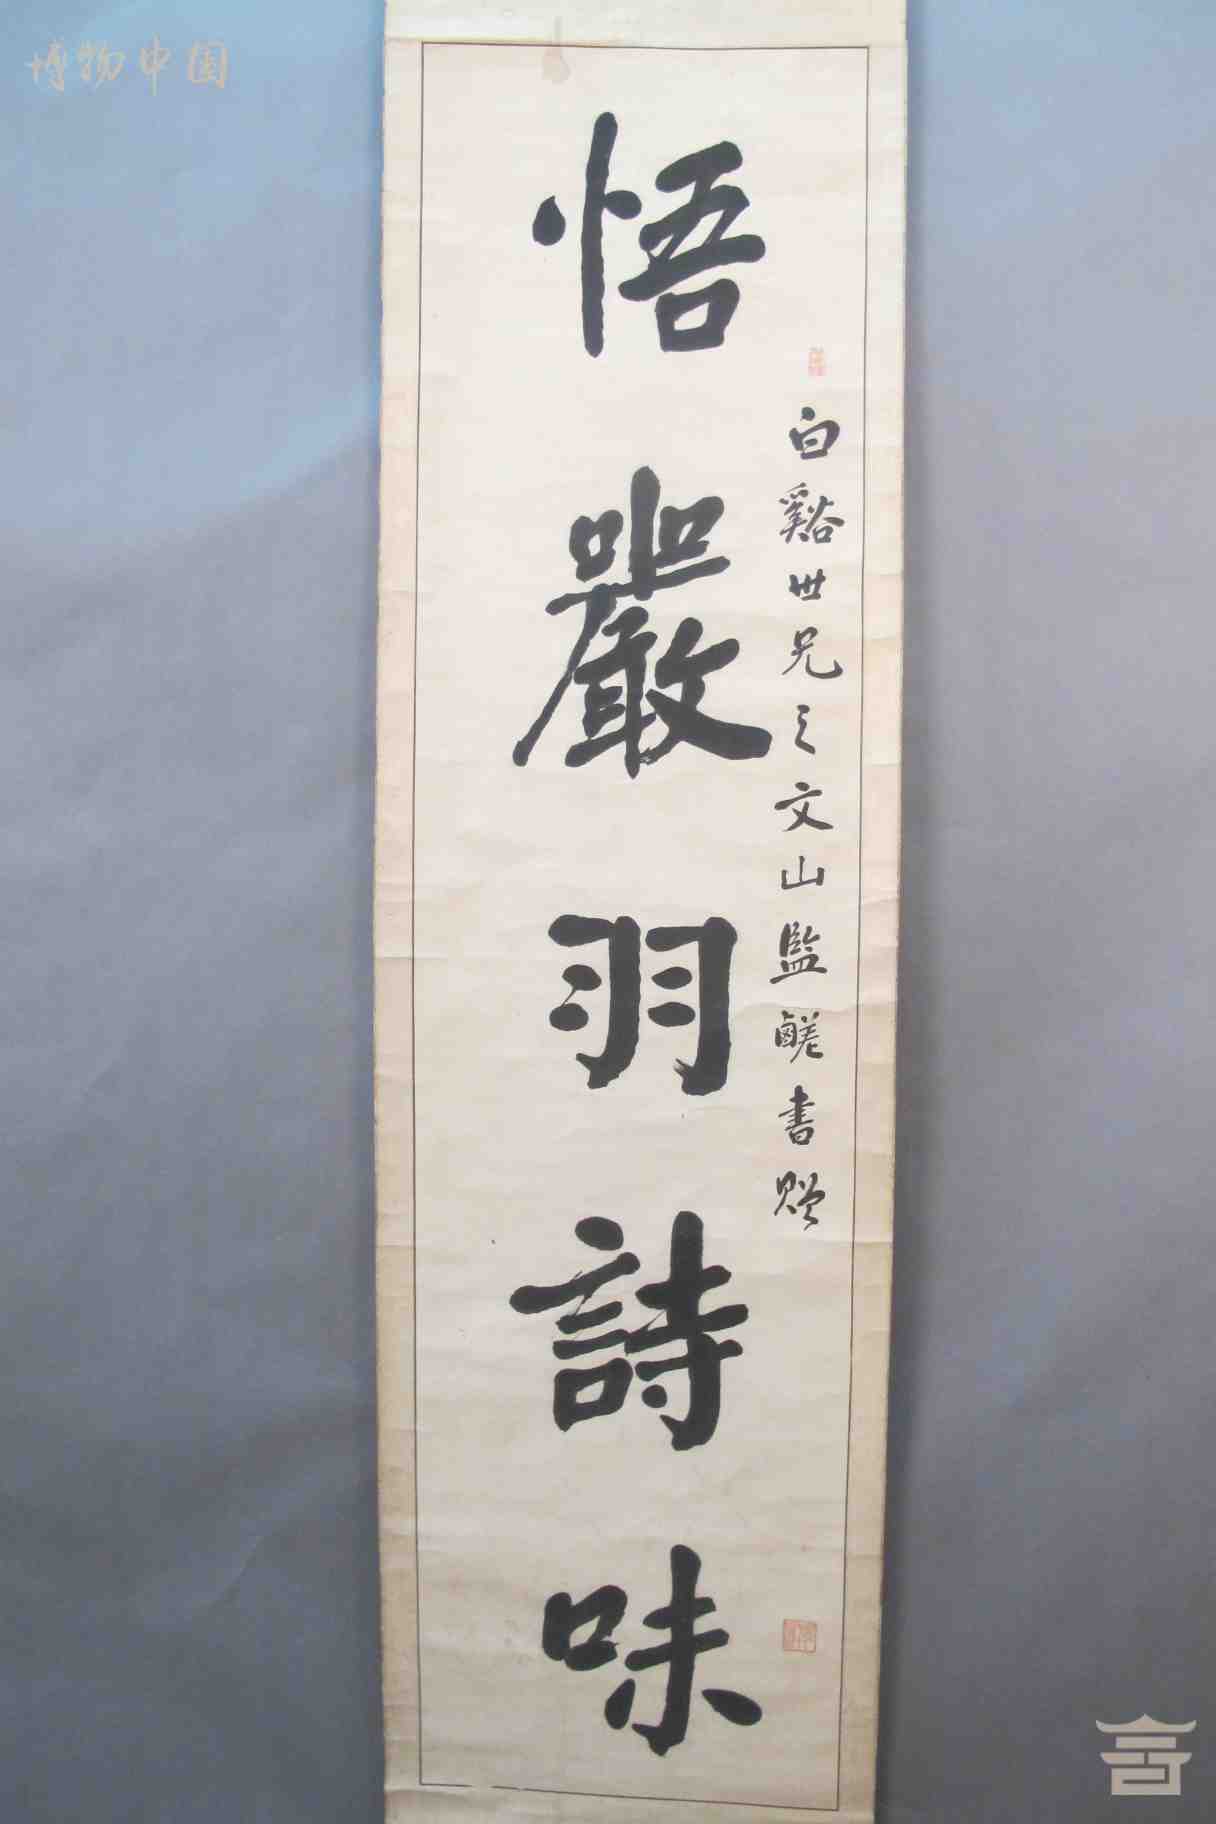 博物中国
悟嚴羽詩味
白谿世兄之文山監鹺書贈